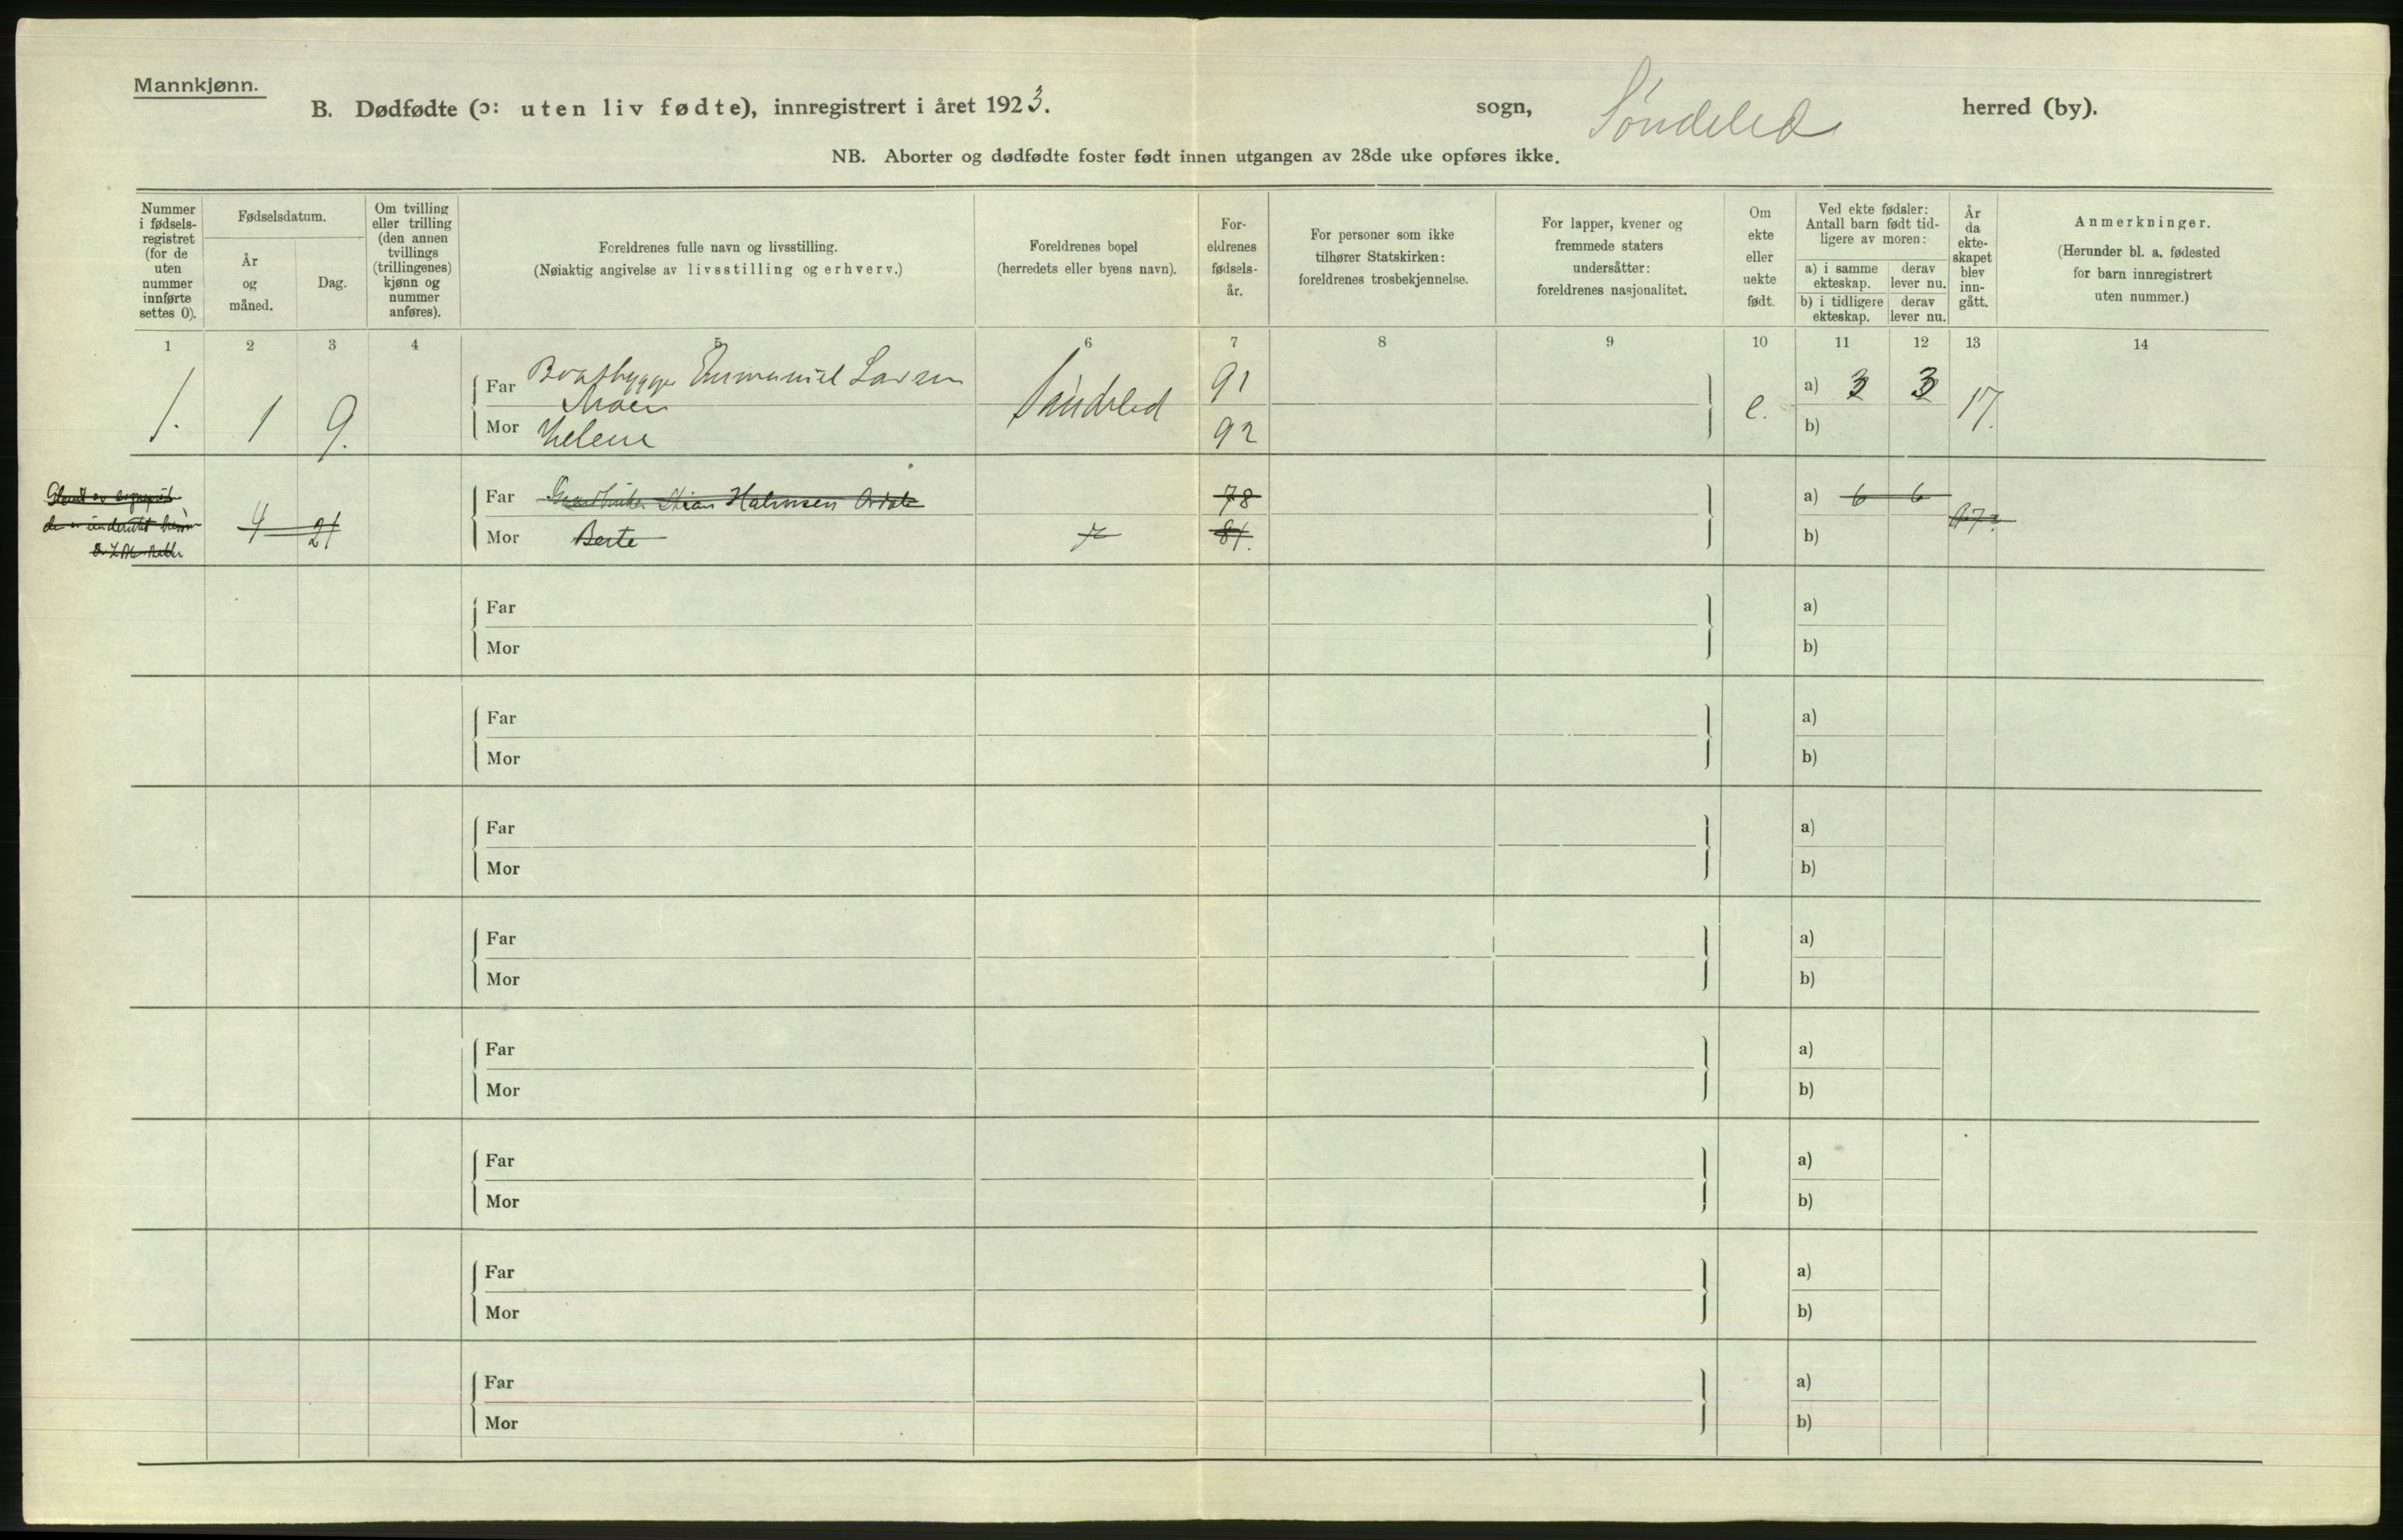 Mannkjønn.
B. Dødfødte (ɔ: uten liv fødte), innregistrert i året 1923. sogn, Søndeled herred (by).
NB. Aborter og dødfødte foster født innen utgangen av 28de uke opføres ikke.
Nummer i fødsels-registret (for de uten nummer innførte settes 0).
Fødselsdatum.
År og måned.
Dag.
Om tvilling eller trilling (den annen tvillings (trillingenes) kjønn og nummer anføres).
Foreldrenes fulle navn og livsstilling.
(Nøiaktig angivelse av livsstilling og erhverv.)
Foreldrenes bopel
(herredets eller byens navn).
For-eldrenes fødsels-år.
For personer som ikke tilhører Statskirken: foreldrenes trosbekjennelse.
For lapper, kvener og fremmede staters undersåtter: foreldrenes nasjonalitet.
Om ekte eller uekte født.
Ved ekte fødsler: Antall barn født tid-ligere av moren:
a) i samme ekteskap.
derav lever nu.
b) i tidligere ekteskap.
derav lever nu.
År da ekte-skapet blev inn-gått.
Anmerkninger.
(Herunder bl. a. fødested for barn innregistrert uten nummer.)
1 2 3 4 5 6 7 8 9 10 11 12 13 14
Far Baatbygger Emmanuel Larsen 91 a) 3 3
Moen
1. 1 9. Søndeled e. 17.
Mor Helene 92 b)
Far Halvorsen 78 a) 6 6
4 21
Mor Berte 81. b)
Far a)
Mor b)
Far a)
Mor b)
Far a)
Mor b)
Far a)
Mor b)
Far a)
Mor b)
Far a)
Mor b)
Far a)
Mor b)
Far a)
Mor b)